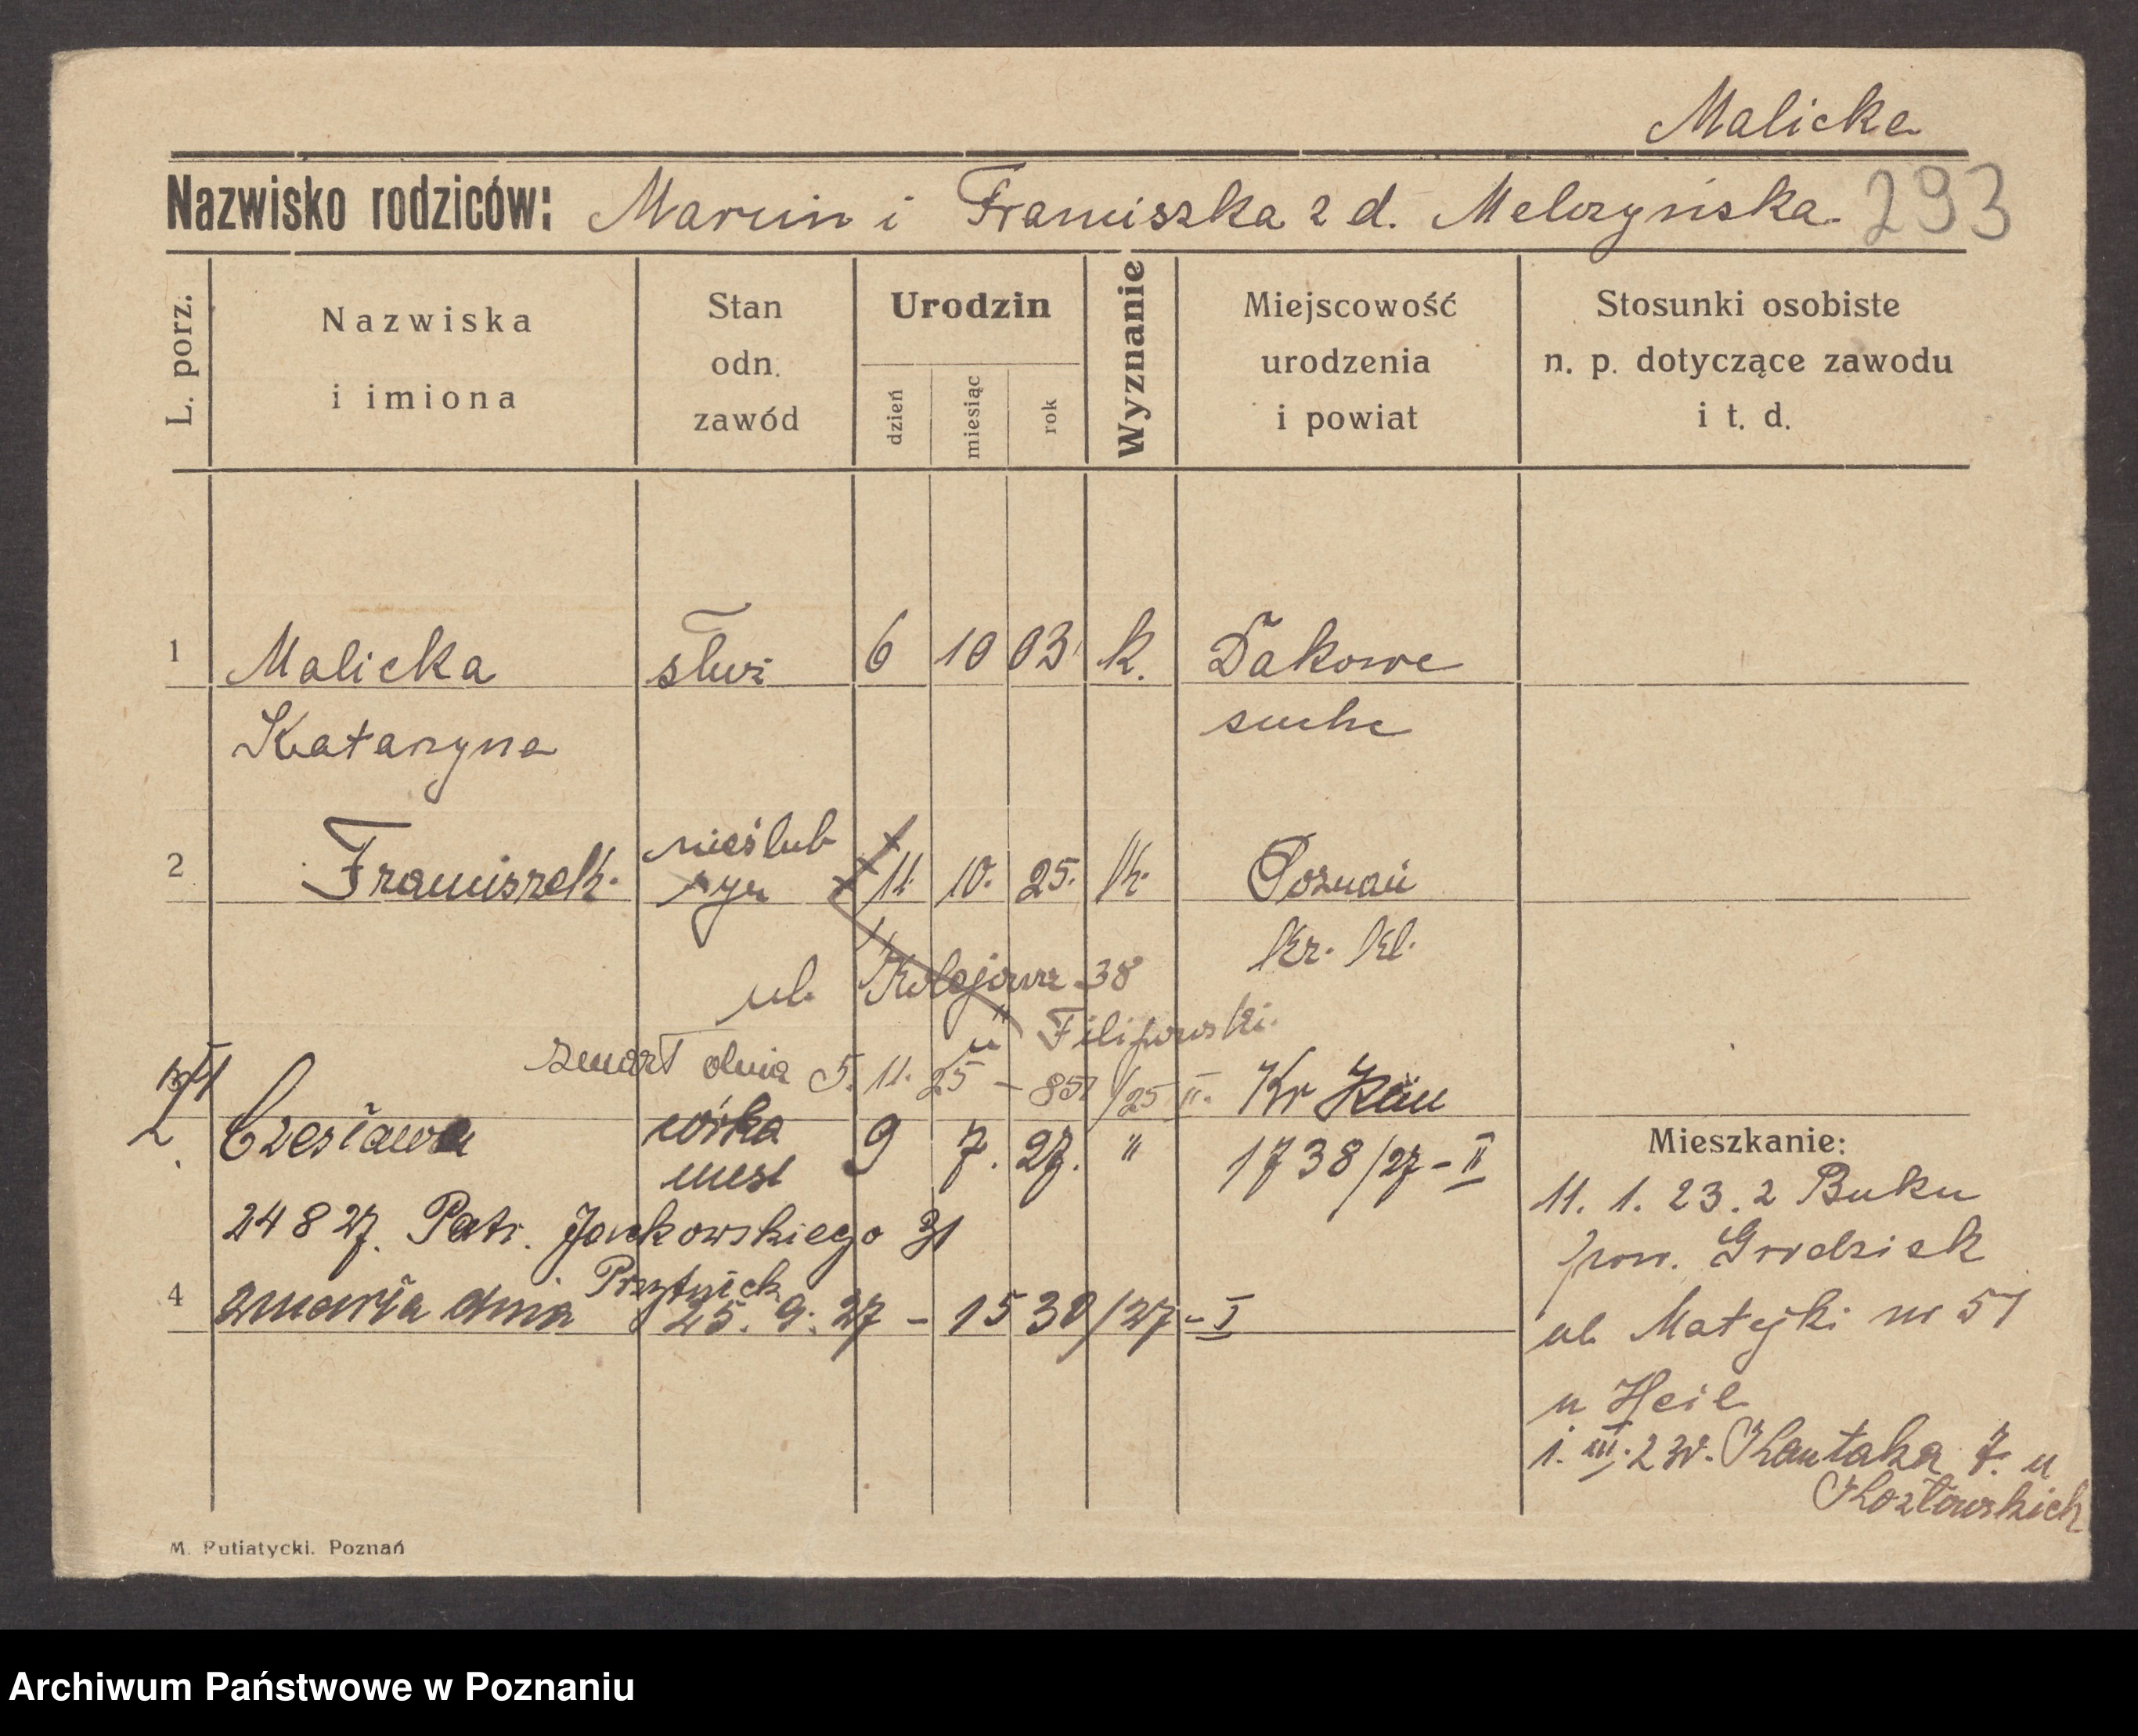 Malicka
Nazwisko rodziców: Marcin i Franciszka z d. Melczyńska 293
L. porz.
Nazwiska
i imiona
Stan
odn.
zawód
Urodzin
dzień
miesiąc
rok
Wyznanie
Miejscowość
urodzenia
i powiat
Stosunki osobiste
n. p. dotyczące zawodu
i t. d.
1 Malicka służ 6 10 03 k. Dakowe
Katarzyna suche
nieślub
2 Franciszek syn 11. 10. 25. k. Poznań
kr. kl.
ul. Kolejowa 38
u Filipowski.
zmarł dnia 5. 11. 25 – 851/25 II. Kr
Czesława córka 9 7. 27. " 1738/27 – II
24 8 27. Patr. Jackowskiego 31
4 zmarła dnia 25. 9. 27 – 1530/27 – I
Mieszkanie:
11. 1. 23. z Buku
pow. Grodzisk
ul. Matejki nr 51
u Heil
1. III. 23 r. Kantaka 7. u
Kozłowskich
M. Putiatycki. Poznań
Archiwum Państwowe w Poznaniu